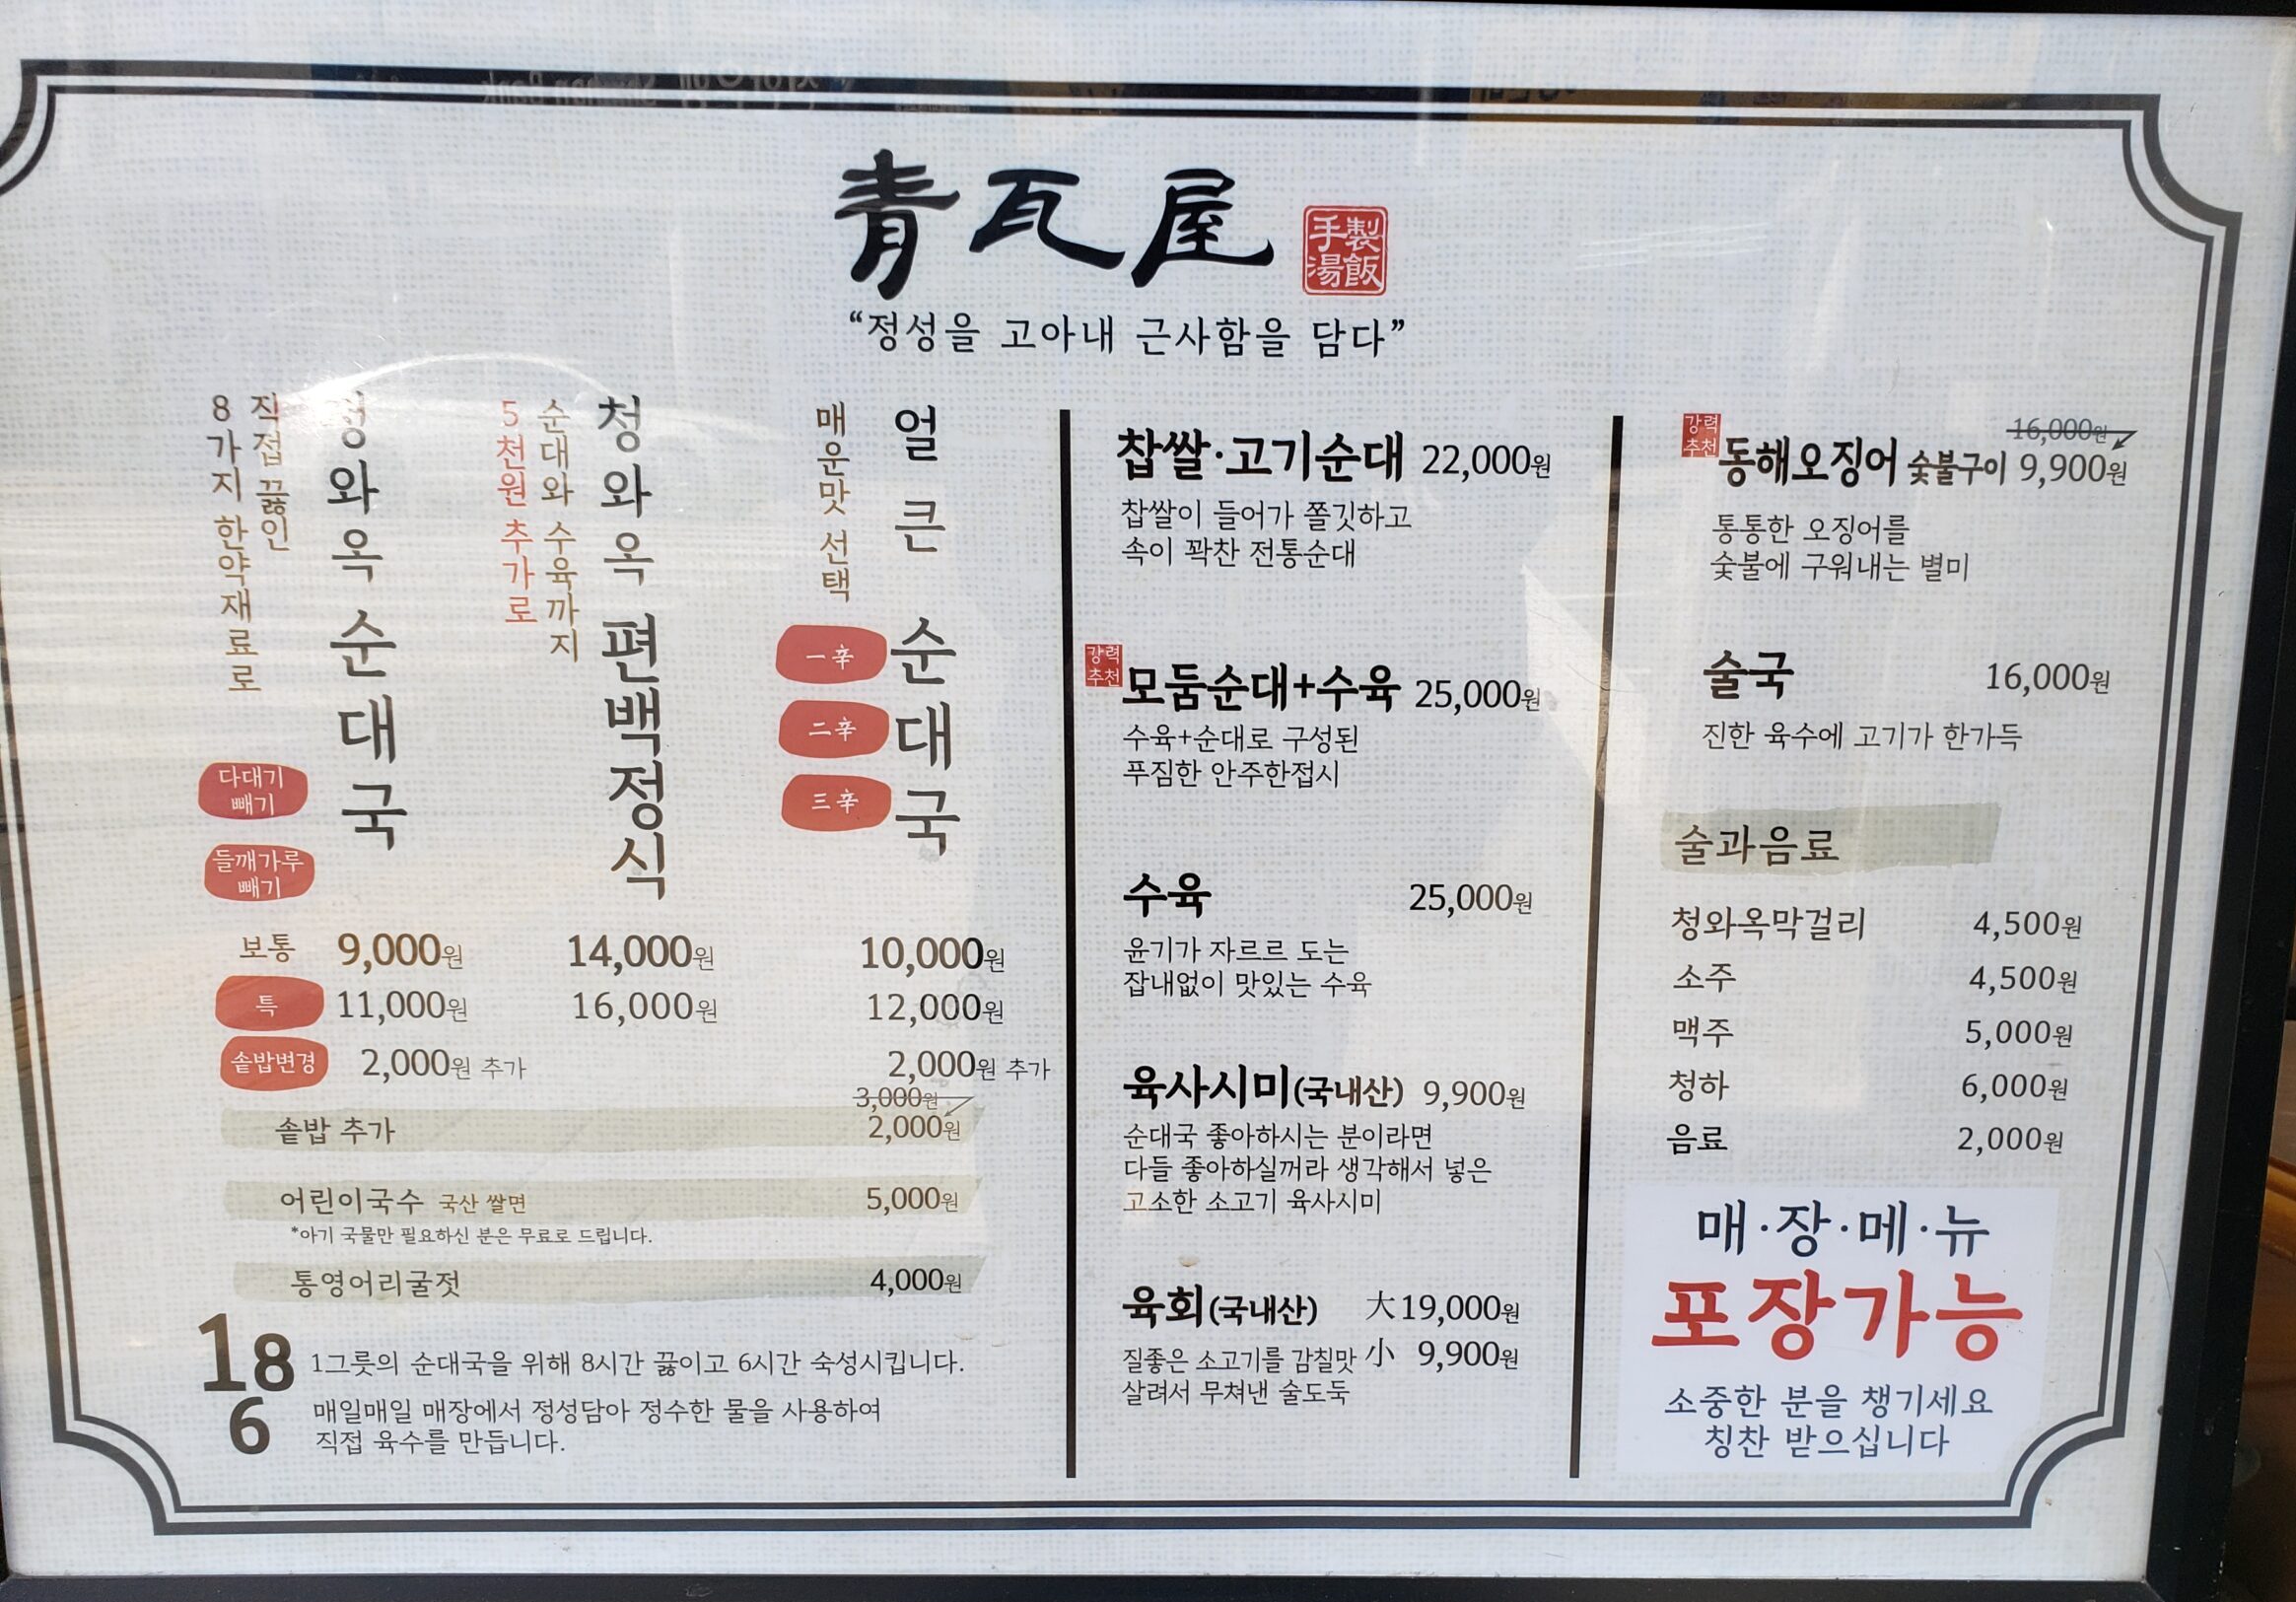 靑瓦屋
手製
湯飯
“정성을 고아내 근사함을 담다”
청와옥 순대국
직접 끓인
8가지 한약재료로
다대기
빼기
들깨가루
빼기
청와옥 편백정식
순대와 수육까지
5천원 추가로
얼큰 순대국
매운맛 선택
一辛
二辛
三辛
보통 9,000원 14,000원 10,000원
특 11,000원 16,000원 12,000원
솥밥변경 2,000원 추가 2,000원 추가
3,000원
솥밥 추가 2,000원
어린이국수 국산 쌀면 5,000원
*아기 국물만 필요하신 분은 무료로 드립니다.
통영어리굴젓 4,000원
18
6
1그릇의 순대국을 위해 8시간 끓이고 6시간 숙성시킵니다.
매일매일 매장에서 정성담아 정수한 물을 사용하여
직접 육수를 만듭니다.
찹쌀·고기순대 22,000원
찹쌀이 들어가 쫄깃하고
속이 꽉찬 전통순대
강력
추천
모둠순대+수육 25,000원
수육+순대로 구성된
푸짐한 안주한접시
수육 25,000원
윤기가 자르르 도는
잡내없이 맛있는 수육
육사시미(국내산) 9,900원
순대국 좋아하시는 분이라면
다들 좋아하실꺼라 생각해서 넣은
고소한 소고기 육사시미
육회(국내산) 大 19,000원
小 9,900원
질좋은 소고기를 감칠맛
살려서 무쳐낸 술도둑
강력
추천
16,000원
동해오징어 숯불구이 9,900원
통통한 오징어를
숯불에 구워내는 별미
술국 16,000원
진한 육수에 고기가 한가득
술과음료
청와옥막걸리 4,500원
소주 4,500원
맥주 5,000원
청하 6,000원
음료 2,000원
매·장·메·뉴
포장가능
소중한 분을 챙기세요
칭찬 받으십니다